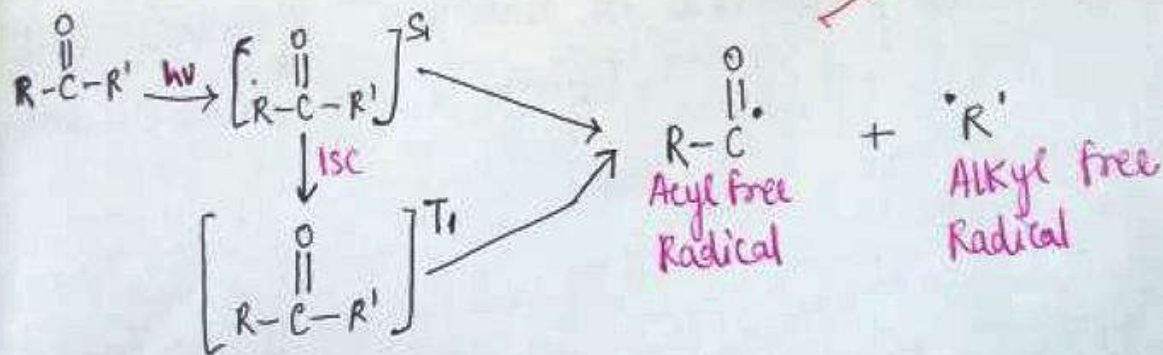 O
||
R-C-R' hν → [R-C-R']S1
O
||
↓ ISC
[R-C-R']T1
O
||
O
||
R-C• + •R'
Acyl free Radical
Alkyl free Radical